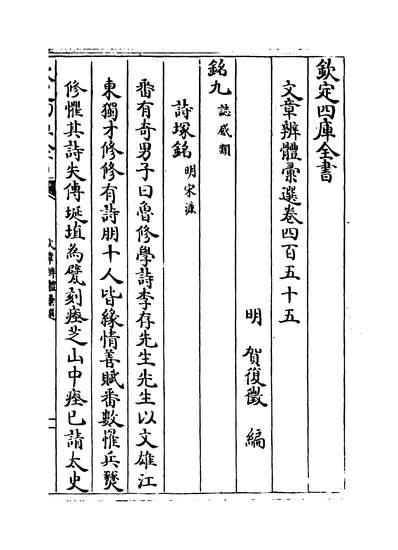 欽定四庫全書
文章辨體彙選卷四百五十五
明 賀復徵 編
銘九 誌感類
詩塚銘 明宋濂
番有奇男子曰魯修學詩李存先生先生以文雄江
東獨才修修有詩朋十人皆緣情善賦番數懼兵燹
修懼其詩失傳埏埴為甓刻瘞芝山中瘞已請太史
文章辨體彙選